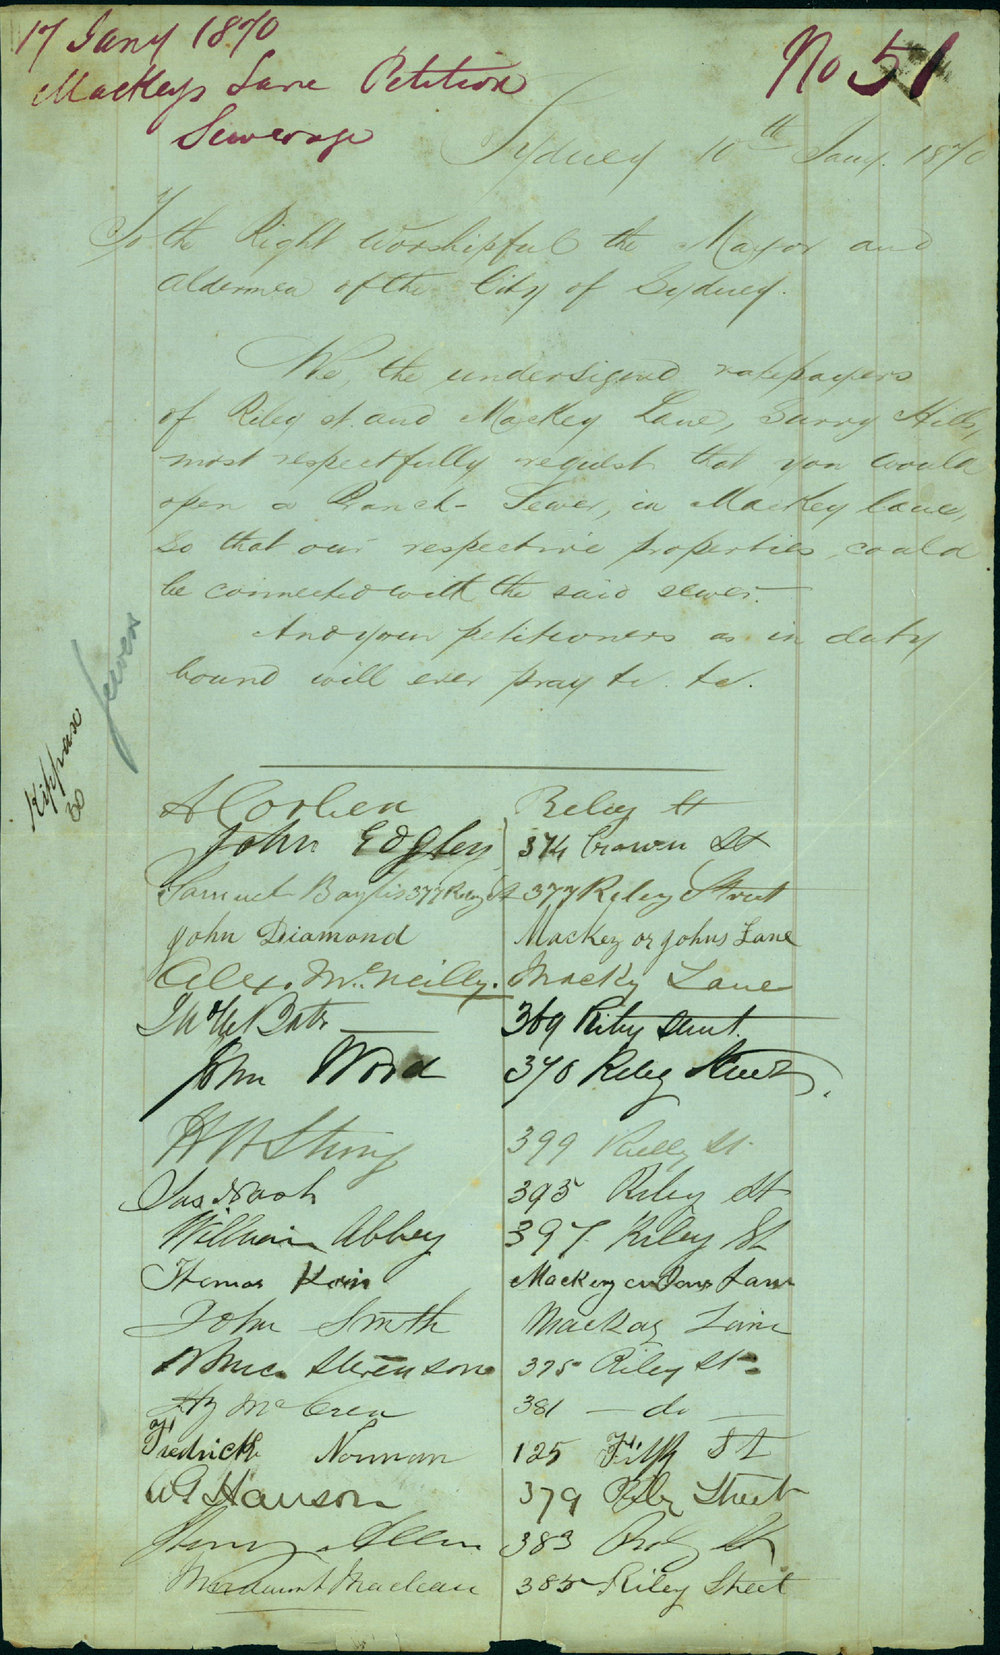 17 Jany 1870
No 51
Mackeys Lane Petition
Sewerage
Sydney 10th Jany. 1870
To the Right Worshipful the Mayor and
Aldermen of the City of Sydney.
We, the undersigned ratepayers
of Riley st. and Mackey Lane, Surry Hills,
most respectfully request that you would
open a Branch-Sewer, in Mackey lane,
so that our respective properties could
be connected with the said sewer.
And your petitioners as in duty
bound will ever pray &c. &c.
Sewers
Kippax
30
A Cohen Riley St
John Edgley 374 Crown St
Samuel Baylis 377 Riley St 377 Riley Street
John Diamond Mackey or Johns Lane
Alex. McNeilly. Macky Lane
369 Riley Street.
John Word 370 Riley Street
H H String 399 Rielly St
Jas Nash 395 Riley St
William Abbey 397 Riley St
Thomas Kain Mackey Lane
John Smith Mackay Lane
Stevenson 375 Riley St
Hy McCrea 381 - do -
Fredrick Norman 125 Fitz St
W G Hanson 379 Riley Street
Henry Allen 383 Riley St
Maclean 385 Riley Street